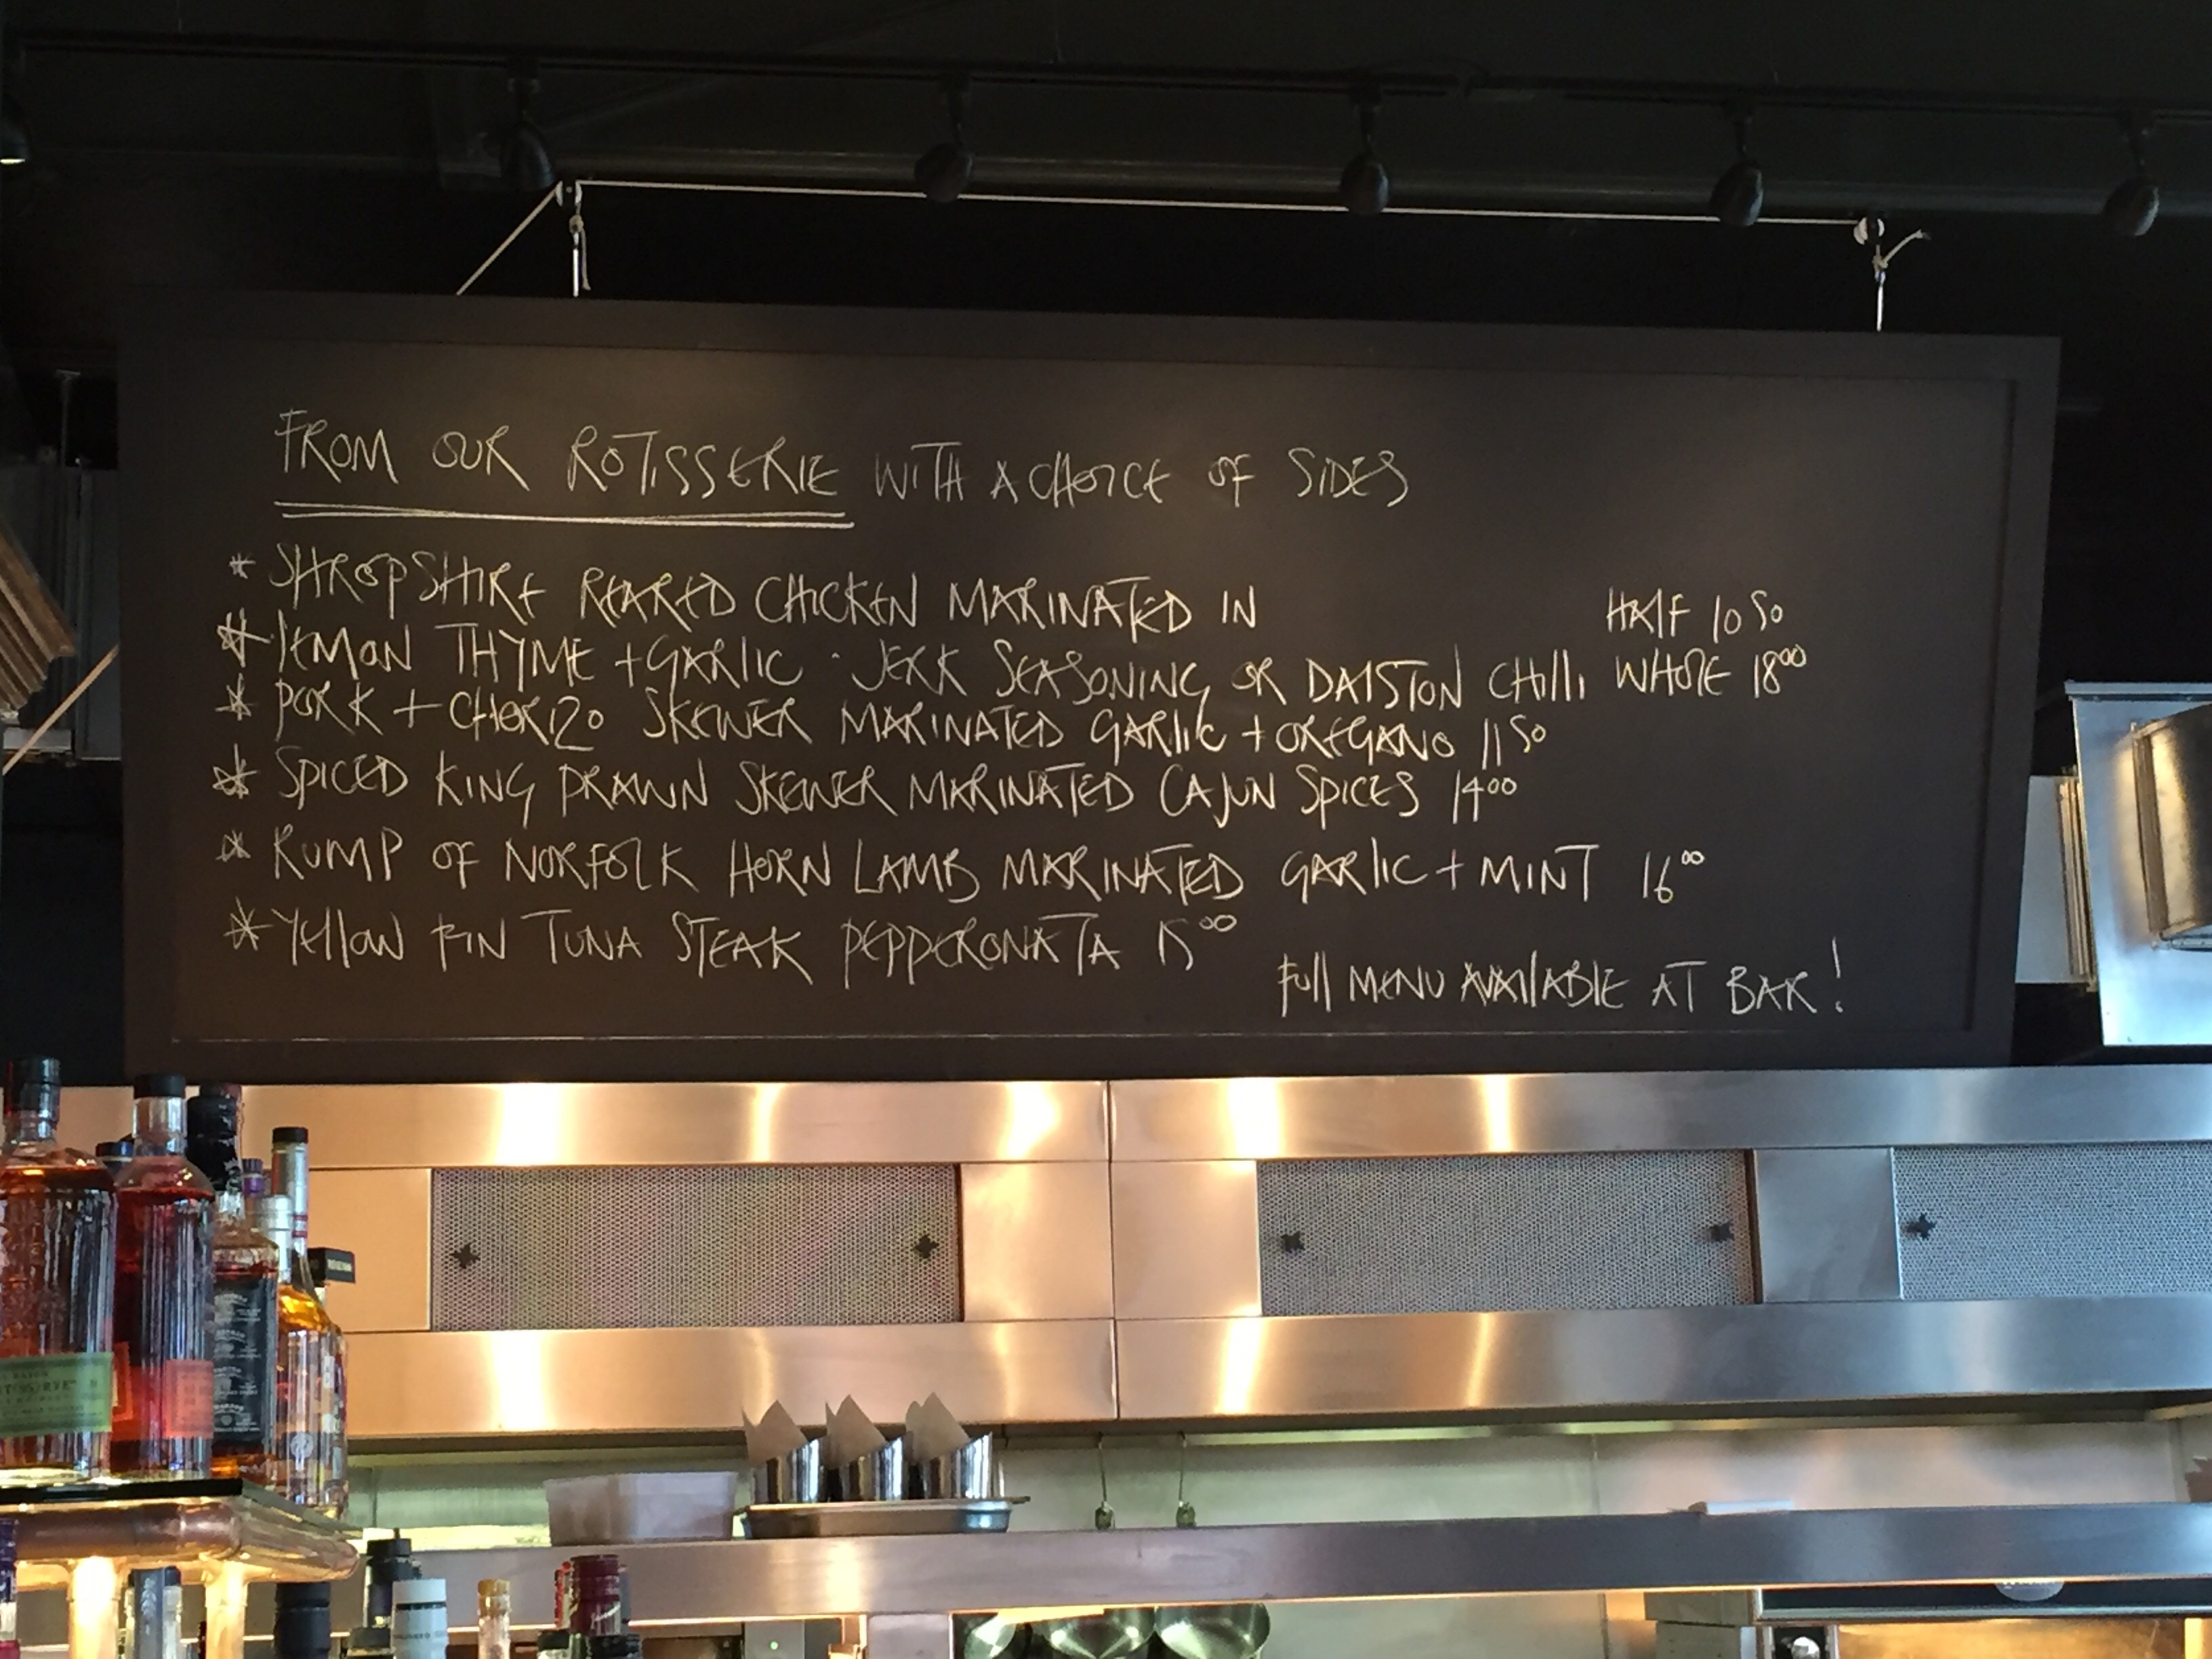 FROM OUR ROTISSERIE WITH A CHOICE OF SIDES
* SHROPSHIRE REARED CHICKEN MARINATED IN HALF 10 50
* LEMON THYME + GARLIC · JERK SEASONING OR DALSTON CHILLI WHOLE 18 00
* PORK + CHORIZO SKEWER MARINATED GARLIC + OREGANO 11 50
* SPICED KING PRAWN SKEWER MARINATED CAJUN SPICES 14 00
* RUMP OF NORFOLK HORN LAMB MARINATED GARLIC + MINT 16 00
* YELLOW FIN TUNA STEAK PEPPERONATA 15 00
FULL MENU AVAILABLE AT BAR!